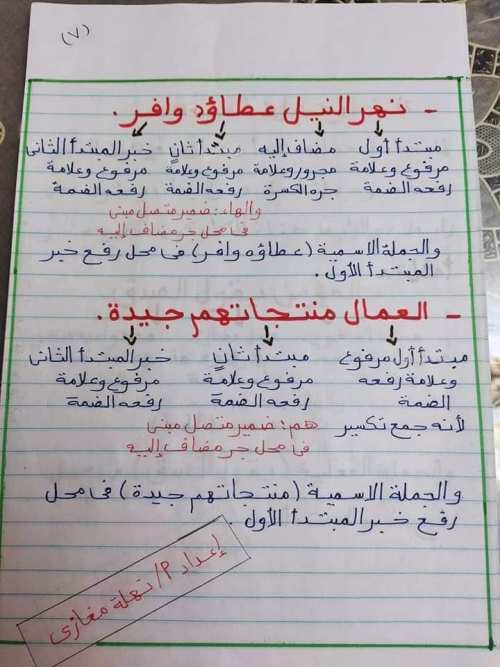 (٧)
- نهر النيل عطاؤه وافر.
مبتدأ أول مضاف إليه مبتدأ ثانٍ خبر المبتدأ الثانى
مرفوع وعلامة مجرور وعلامة مرفوع وعلامة مرفوع وعلامة
رفعه الضمة جره الكسرة رفعه الضمة رفعه الضمة
والهاء: ضمير متصل مبنى
فى محل جر مضاف إليه
والجملة الاسمية (عطاؤه وافر) فى محل رفع خبر
المبتدأ الأول.
- العمال منتجاتهم جيدة.
مبتدأ أول مرفوع مبتدأ ثانٍ خبر المبتدأ الثانى
وعلامة رفعه مرفوع وعلامة مرفوع وعلامة
الضمة رفعه الضمة رفعه الضمة
لأنه جمع تكسير هم: ضمير متصل مبنى
فى محل جر مضاف إليه
والجملة الاسمية (منتجاتهم جيدة) فى محل
رفع خبر المبتدأ الأول.
إعداد P/ نهلة مغازى